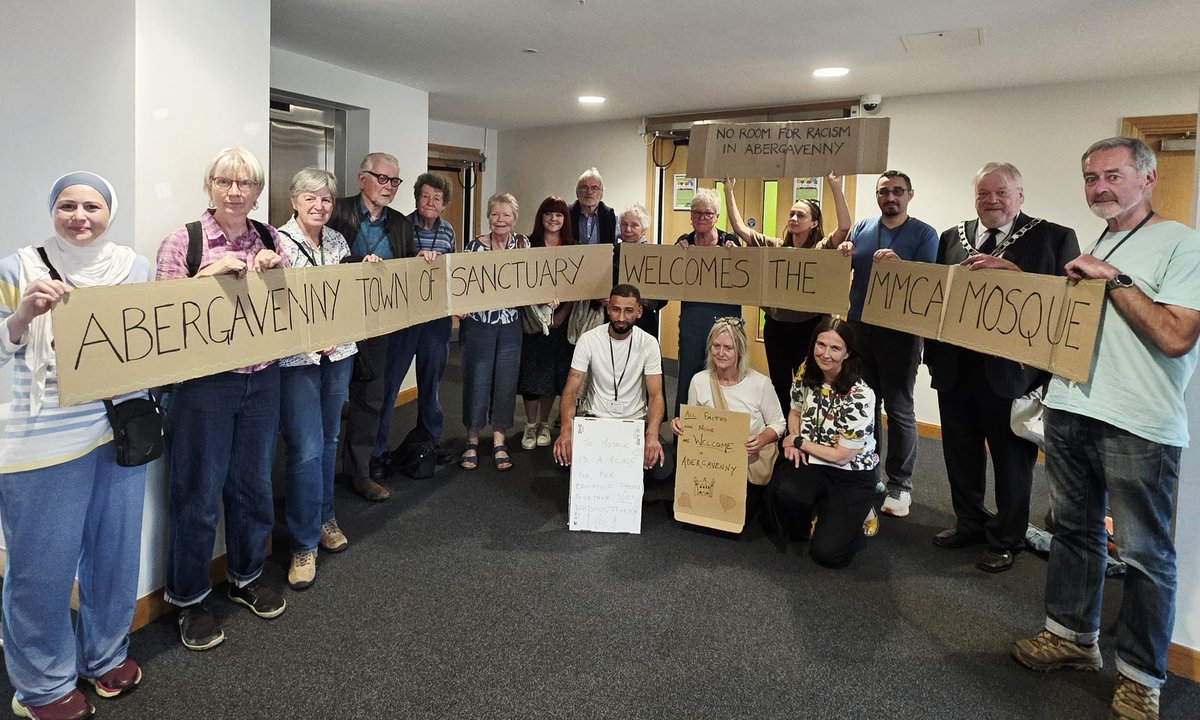 NO ROOM FOR RACISM
IN ABERGAVENNY
ABERGAVENNY TOWN OF SANCTUARY WELCOMES THE MMCA MOSQUE
THE MOSQUE
IS A PLACE
FOR
BRINGING PEOPLE
TOGETHER NOT
DIVIDING THEM
ALL FAITHS
AND NONE
ARE WELCOME
IN
ABERGAVENNY